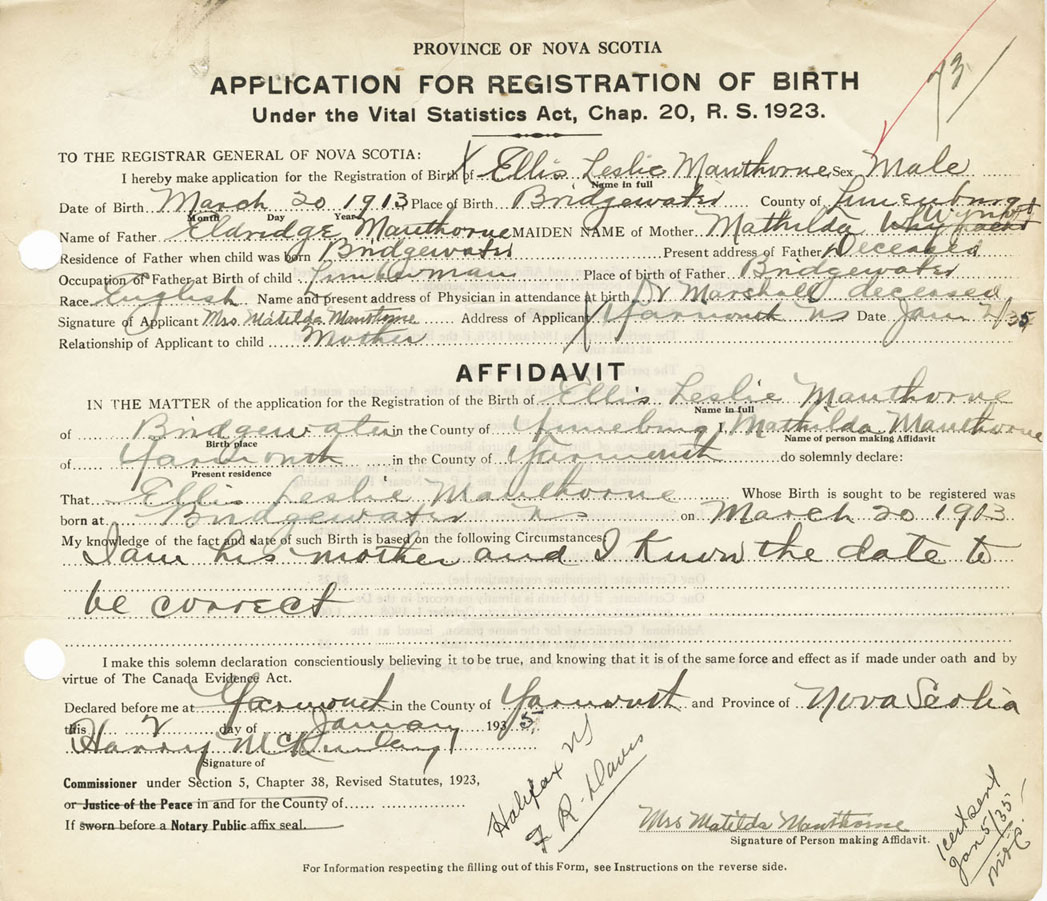 73
PROVINCE OF NOVA SCOTIA
APPLICATION FOR REGISTRATION OF BIRTH
Under the Vital Statistics Act, Chap. 20, R. S. 1923.
TO THE REGISTRAR GENERAL OF NOVA SCOTIA:
I hereby make application for the Registration of Birth of Ellis Leslie Mawthorne Sex Male
Name in full
Date of Birth March 20 1913 Place of Birth Bridgewater County of Lunenburg
Month Day Year
Name of Father Eldridge Mawthorne MAIDEN NAME of Mother Mathilda
Residence of Father when child was born Bridgewater Present address of Father Deceased
Occupation of Father at Birth of child Lumberman Place of birth of Father Bridgewater
Race English Name and present address of Physician in attendance at birth Dr Marshall deceased
Signature of Applicant Mrs Matilda Mawthorne Address of Applicant Yarmouth NS Date Jan 2/35
Relationship of Applicant to child Mother
AFFIDAVIT
IN THE MATTER of the application for the Registration of the Birth of Ellis Leslie Mawthorne
Name in full
of Bridgewater in the County of Lunenburg I, Mathilda Mawthorne
Birth place Name of person making Affidavit
of Yarmouth in the County of Yarmouth do solemnly declare:
Present residence
That Ellis Leslie Mawthorne Whose Birth is sought to be registered was
born at Bridgewater NS on March 20 1913
My knowledge of the fact and date of such Birth is based on the following Circumstances
I am his mother and I know the date to
be correct
I make this solemn declaration conscientiously believing it to be true, and knowing that it is of the same force and effect as if made under oath and by
virtue of The Canada Evidence Act.
Declared before me at Yarmouth in the County of Yarmouth and Province of Nova Scotia
this 2 day of January 1935
Harry McKinlay
Signature of
Commissioner under Section 5, Chapter 38, Revised Statutes, 1923,
or Justice of the Peace in and for the County of
If sworn before a Notary Public affix seal.
Halifax NS
F R. Davis
Mrs Matilda Mawthorne
Signature of Person making Affidavit.
1 cert sent
Jan 5/35
For Information respecting the filling out of this Form, see Instructions on the reverse side.